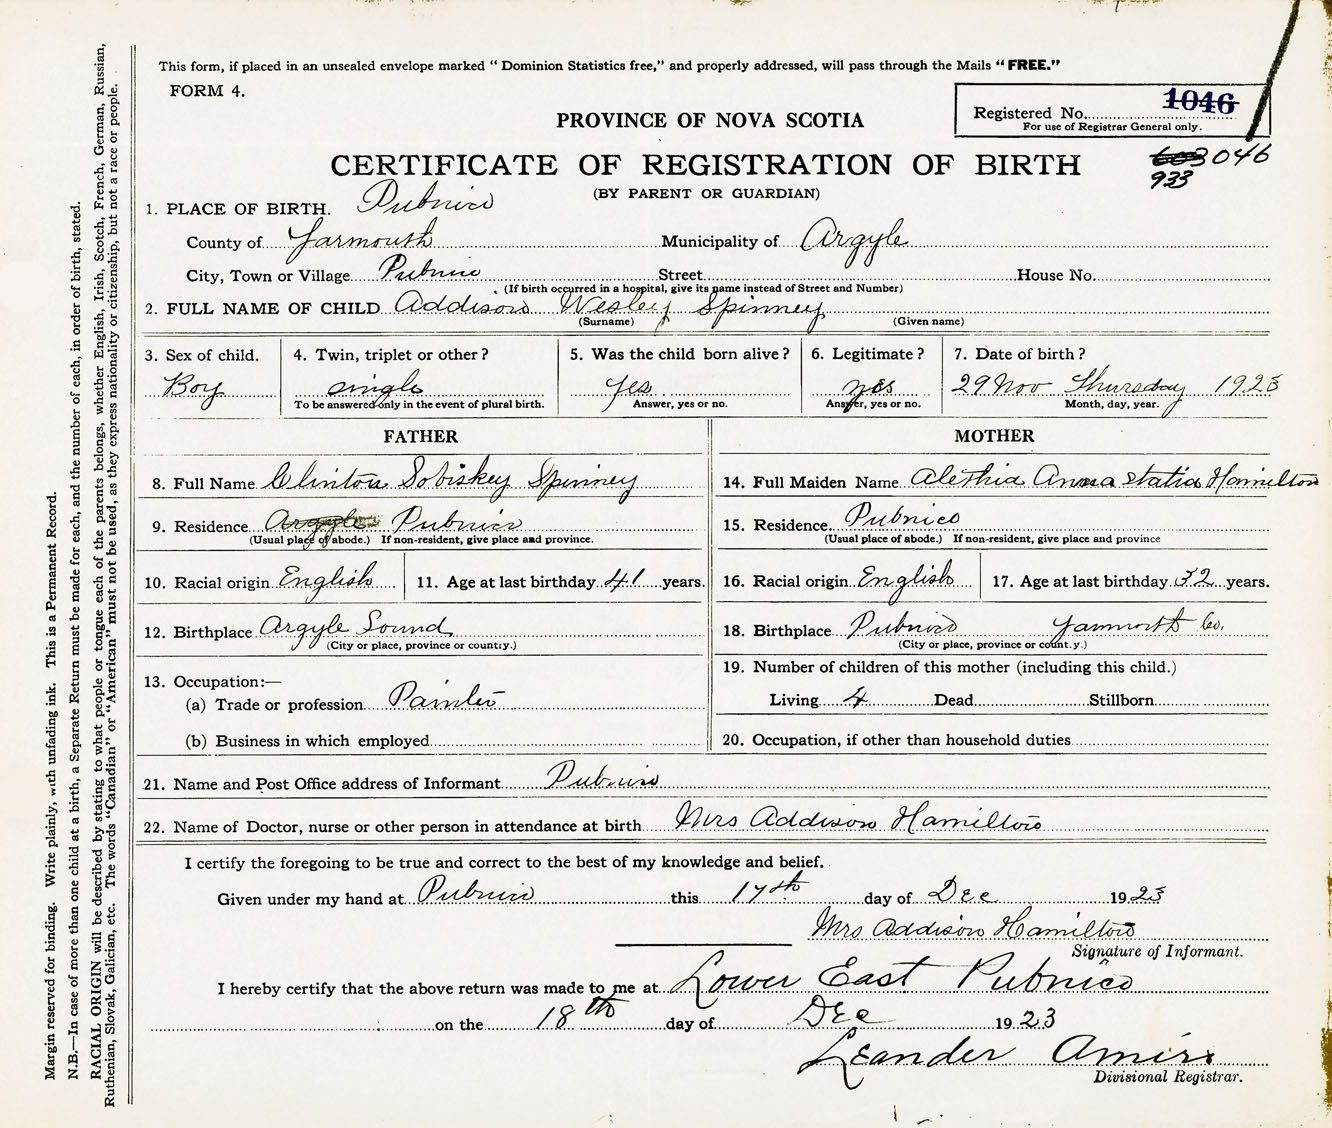 This form, if placed in an unsealed envelope marked " Dominion Statistics free," and properly addressed, will pass through the Mails " FREE."
FORM 4.
Registered No. 1046
For use of Registrar General only.
PROVINCE OF NOVA SCOTIA
CERTIFICATE OF REGISTRATION OF BIRTH
603 046
933
(BY PARENT OR GUARDIAN)
1. PLACE OF BIRTH. Pubnico
County of Yarmouth Municipality of Argyle
City, Town or Village Pubnico Street House No.
(If birth occurred in a hospital, give its name instead of Street and Number)
2. FULL NAME OF CHILD Addison Wesley Spinney
(Surname) (Given name)
3. Sex of child. 4. Twin, triplet or other? 5. Was the child born alive? 6. Legitimate? 7. Date of birth?
Boy single yes yes 29 Nov Thursday 1923
To be answered only in the event of plural birth. Answer, yes or no. Answer, yes or no. Month, day, year.
FATHER MOTHER
8. Full Name Clinton Sobiskey Spinney 14. Full Maiden Name Alethia Anna statia Hamilton
9. Residence Argyle Pubnico 15. Residence. Pubnico
(Usual place of abode.) If non-resident, give place and province. (Usual place of abode.) If non-resident, give place and province
10. Racial origin English 11. Age at last birthday 41 years. 16. Racial origin English 17. Age at last birthday 32 years.
12. Birthplace Argyle Sound 18. Birthplace Pubnico Yarmouth Co.
(City or place, province or country.) (City or place, province or country.)
19. Number of children of this mother (including this child.)
13. Occupation:—
(a) Trade or profession Painter Living 4 Dead Stillborn
(b) Business in which employed 20. Occupation, if other than household duties
21. Name and Post Office address of Informant Pubnico
22. Name of Doctor, nurse or other person in attendance at birth Mrs Addison Hamilton
I certify the foregoing to be true and correct to the best of my knowledge and belief.
Given under my hand at Pubnico this 17th day of Dec 1923
Mrs Addison Hamilton
Signature of Informant.
I hereby certify that the above return was made to me at Lower East Pubnico
on the 18th day of Dec 1923
Leander Amiro
Divisional Registrar.
Margin reserved for binding. Write plainly, with unfading ink. This is a Permanent Record.
N.B.—In case of more than one child at a birth, a Separate Return must be made for each, and the number of each, in order of birth, stated.
RACIAL ORIGIN will be described by stating to what people or tongue each of the parents belongs, whether English, Irish, Scotch, French, German, Russian,
Ruthenian, Slovak, Galician, etc. The words "Canadian" or "American" must not be used, as they express nationality or citizenship, but not a race or people.